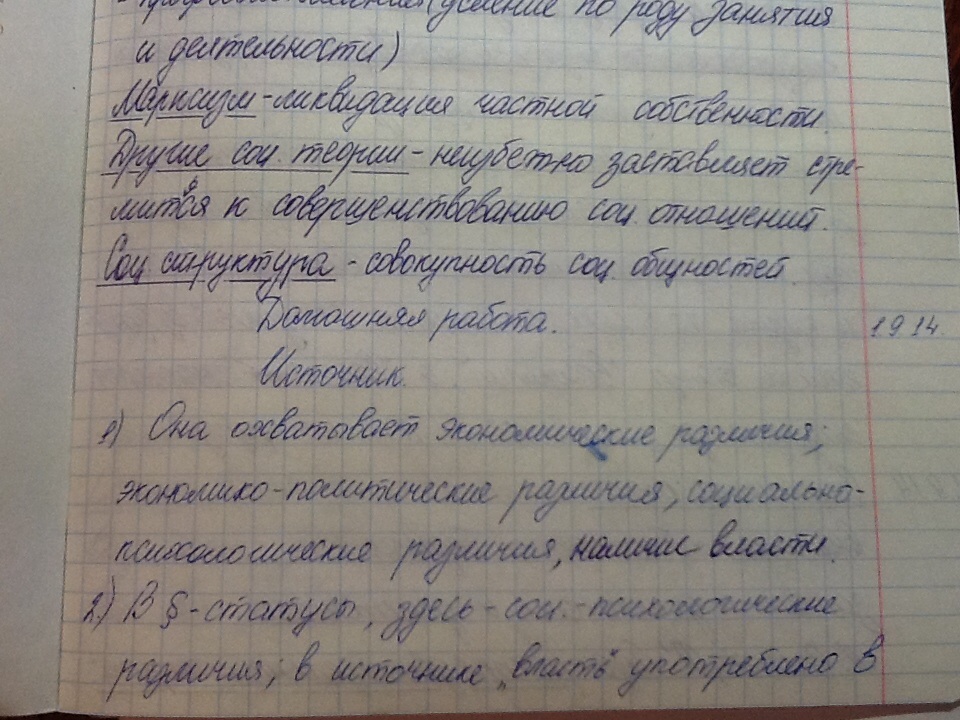 (деление по роду занятия
и деятельности)
Марксизм-ликвидация частной собственности.
Другие соц. теории-неизбежно заставляет стре-
мится к совершенствованию соц. отношений.
Соц. структура-совокупность соц. общностей.
Домашняя работа.
19 14.
Источник.
1) Она охватывает экономические различия;
экономико-политические различия, социально-
психологические различия, наличие власти.
2) В §-статусы, здесь-соц.-психологические
различия; в источнике „власть" употреблено в